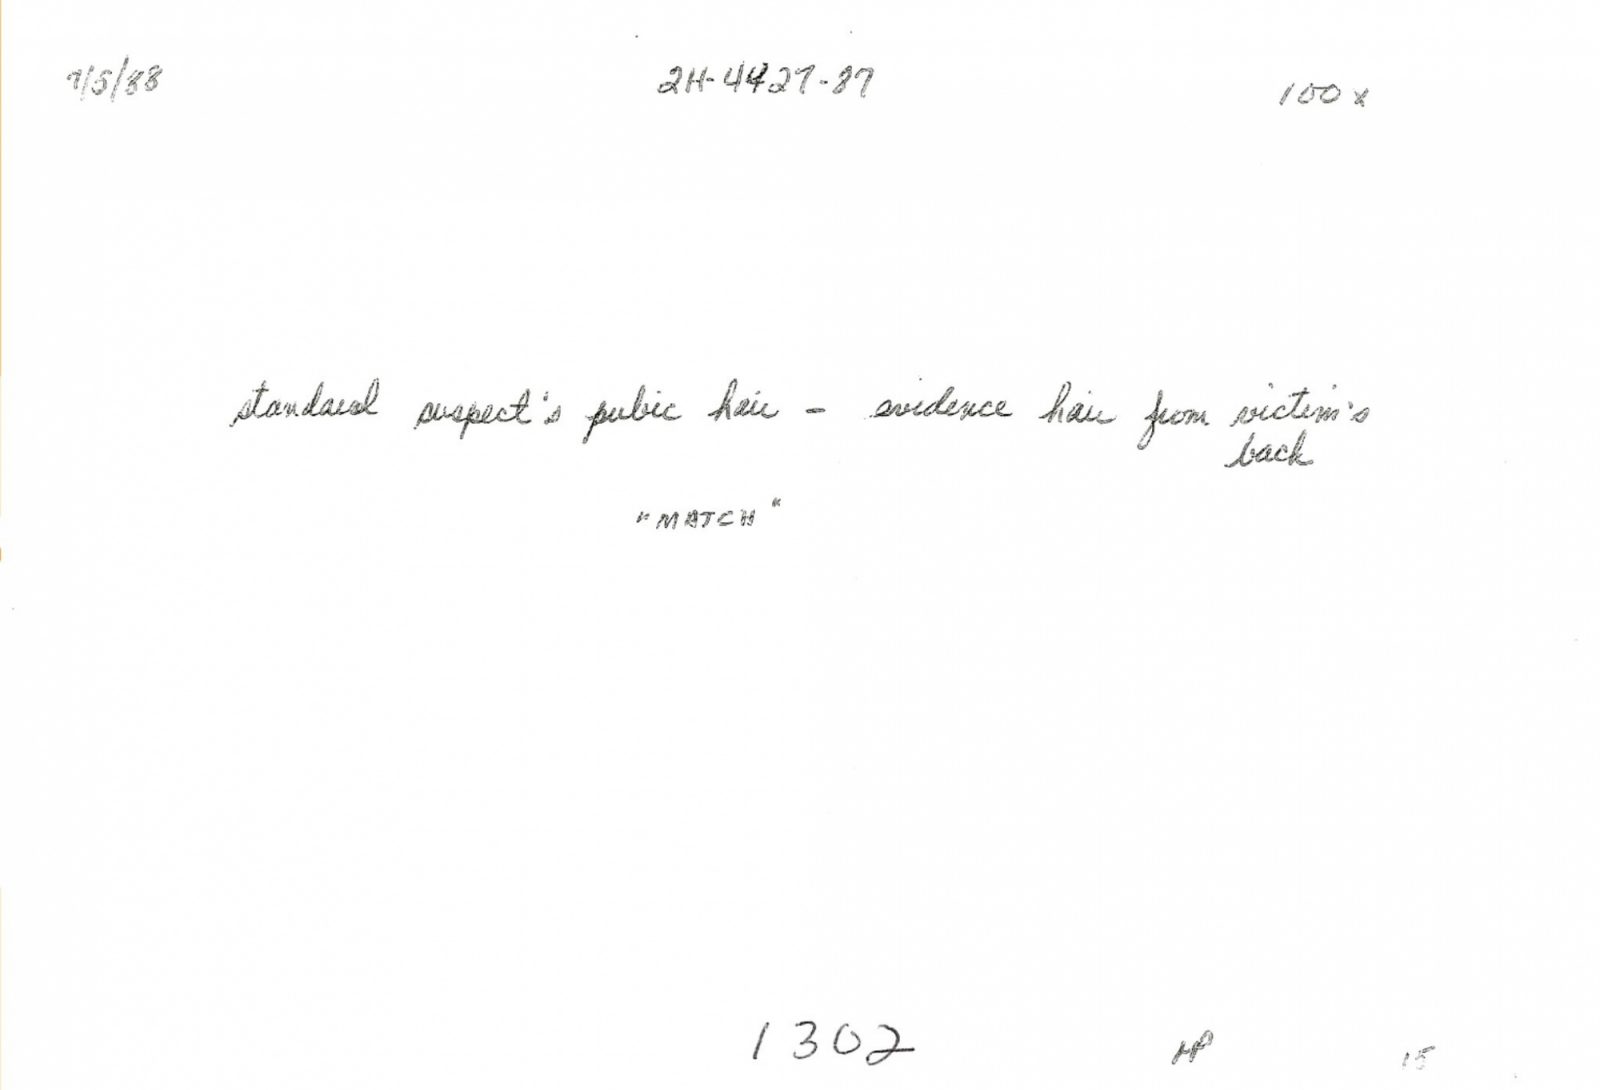 7/5/88 2H-4427-87 100x
standard suspect's pubic hair - evidence hair from victim's
back
"MATCH"
1302 MP 15